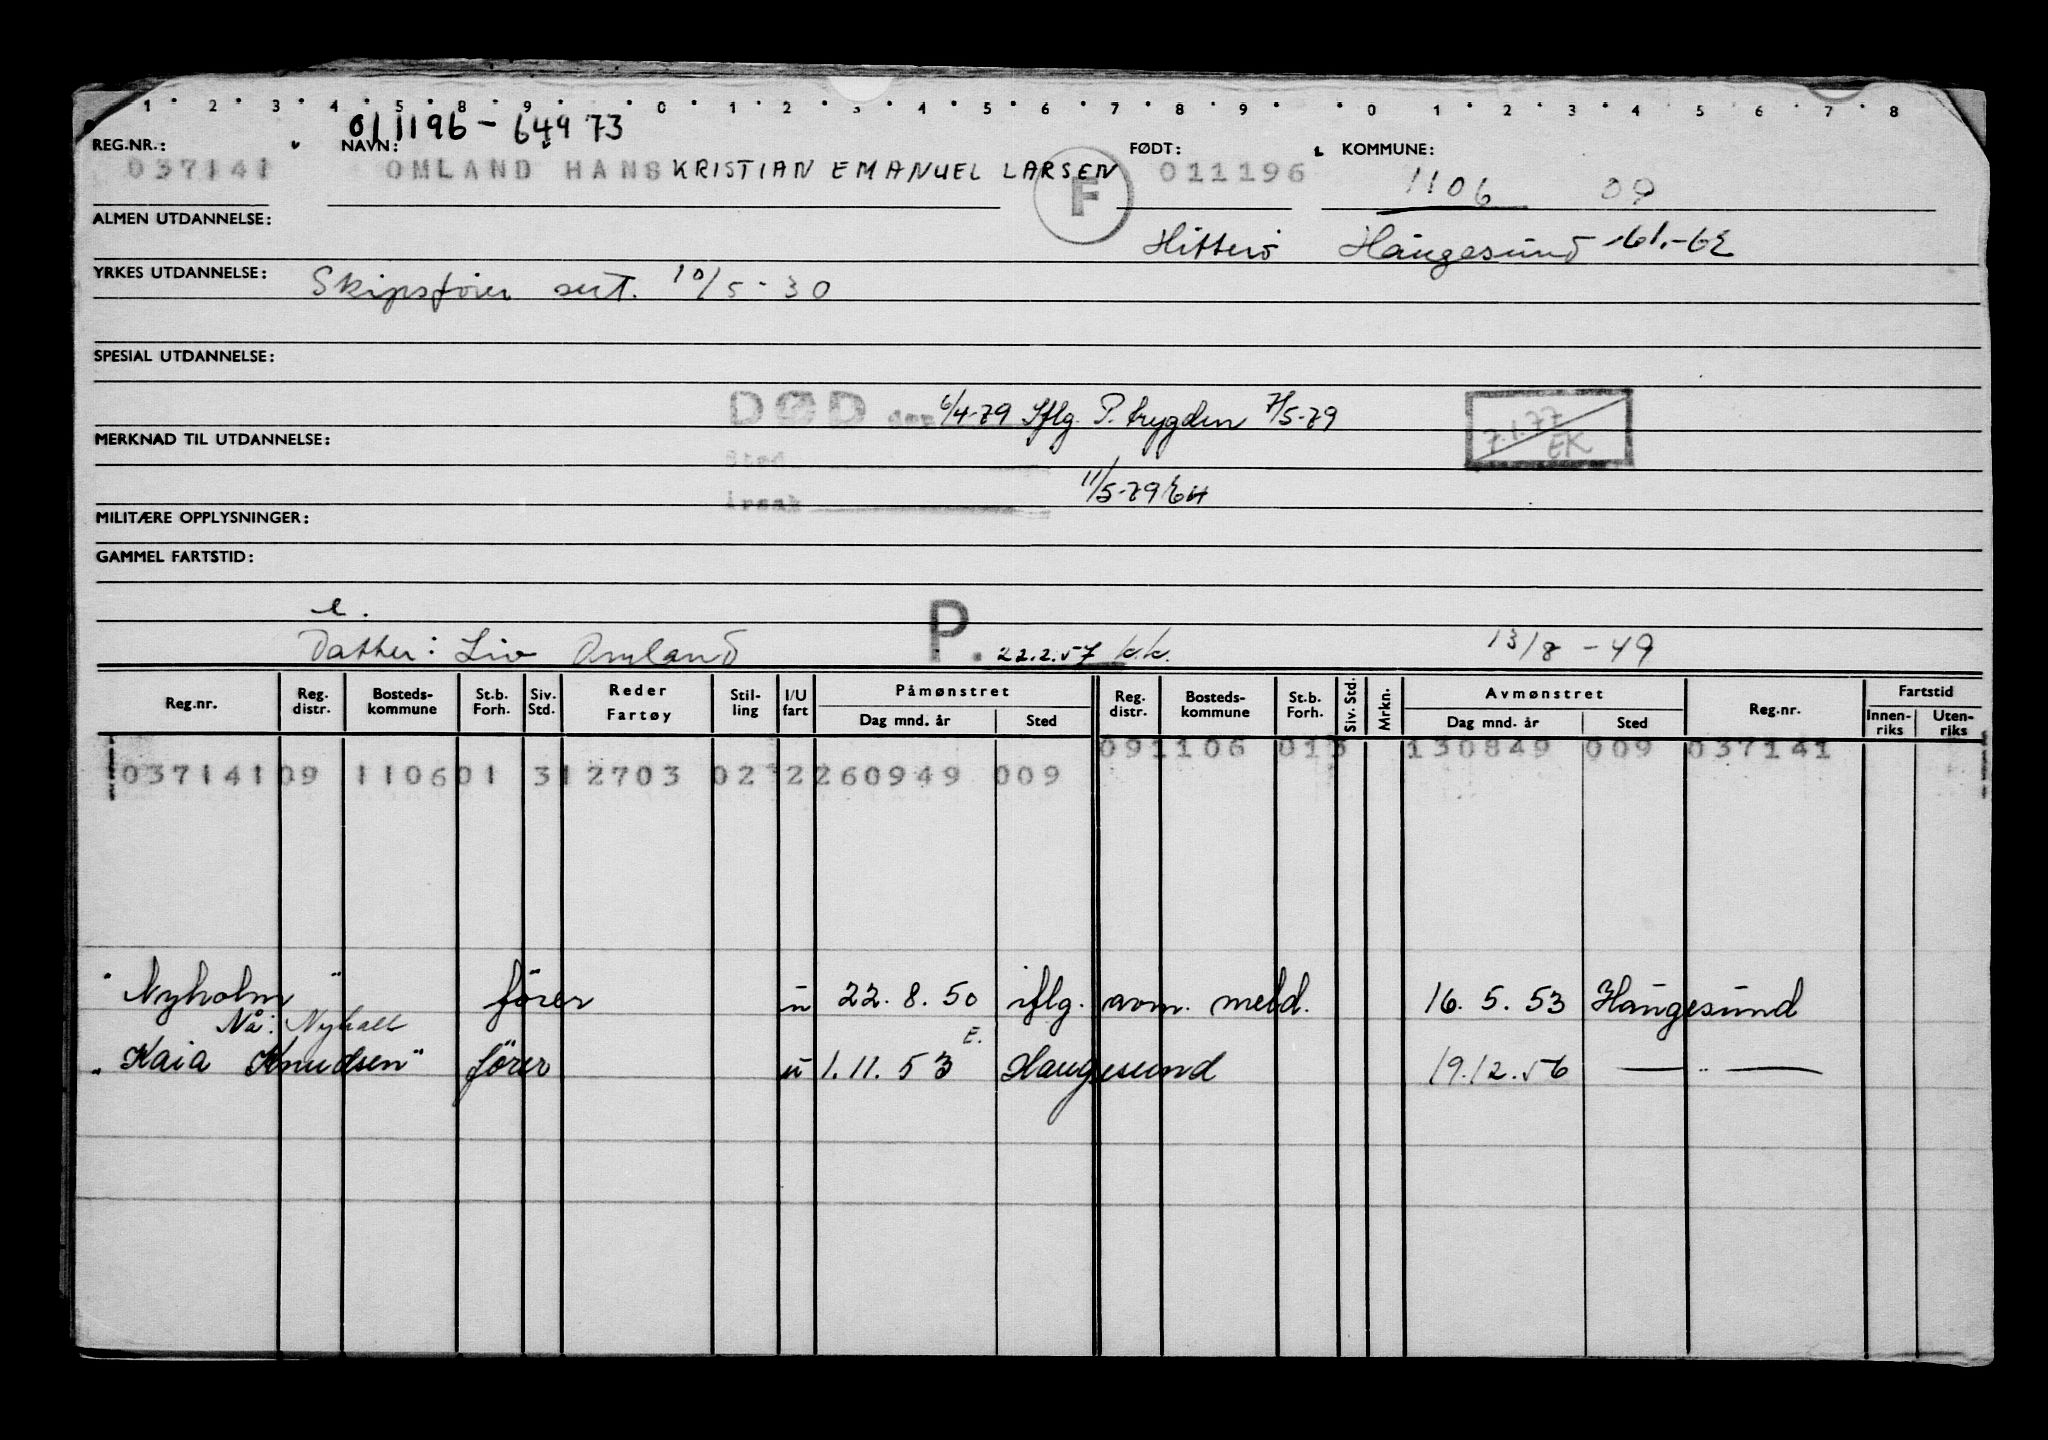 1 2 3 4 5 8 9 0 1 2 3 4 5 6 7 8 9 0 1 2 3 4 5 6 7 8
011196 - 64973
REG.NR.: NAVN: FØDT: KOMMUNE:
037141 OMLAND HANS KRISTIAN EMANUEL LARSEN F 011196 1106 09
ALMEN UTDANNELSE: Hitterö Haugesund
YRKES UTDANNELSE: Skipsfører sert. 10/5-30
SPESIAL UTDANNELSE:
DØD den 6/4-79 Iflg. P. trygden 7/5-79 7.1.77
MERKNAD TIL UTDANNELSE: EK
Sted
Årsak 11/5-79 EH
MILITÆRE OPPLYSNINGER:
GAMMEL FARTSTID:
e.
Datter: Liv Omland P. 22.2.57 k.k. 13/8-49
Reg.nr. Reg. distr. Bosteds-kommune St.b. Forh. Siv. Std. Reder Fartøy Stil-ling I/U fart Påmønstret Dag mnd. år Sted Reg. distr. Bosteds-kommune St.b. Forh. Siv. Std. Mrkn. Avmønstret Dag mnd. år Sted Reg.nr. Fartstid Innen-riks Uten-riks
091106 013 130849 009 037141
037141 09 1106 01 3 12703 02 2 260949 009
"Nyholm" fører u 22.8.50 iflg. avm. meld. 16.5.53 Haugesund
Nå: Nyhall
"Kaia Knudsen" fører u 1.11.53 E. Haugesund 19.12.56 — " —